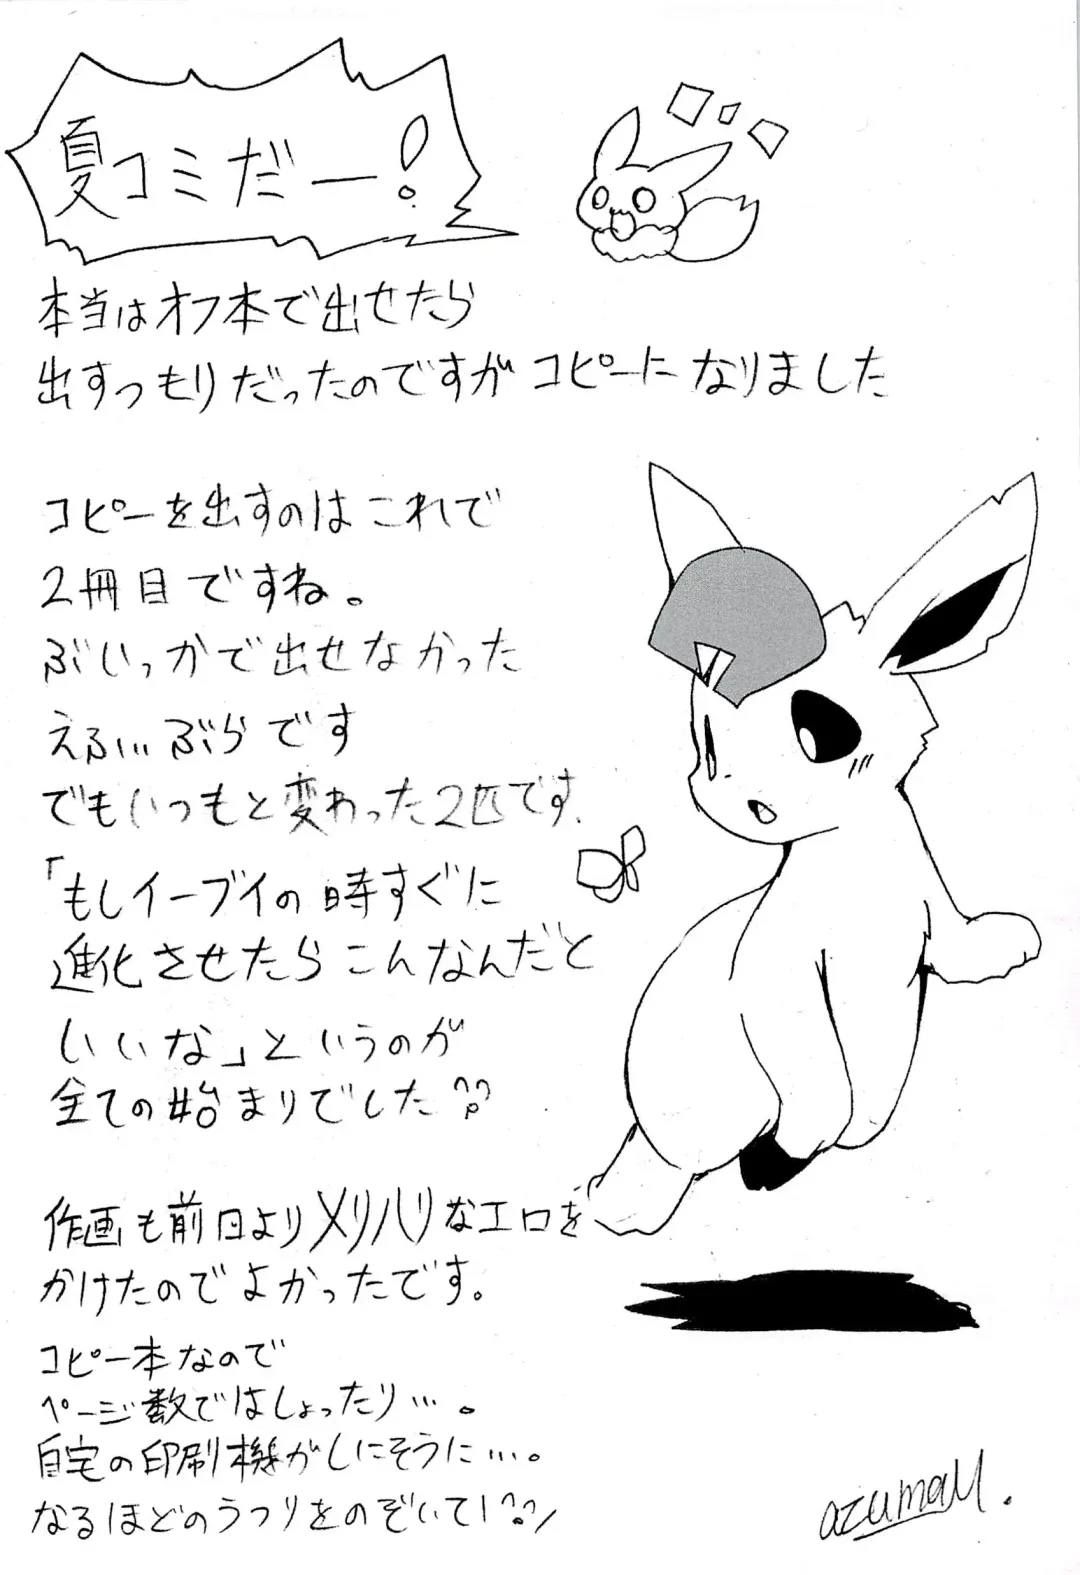 夏コミだー!
本当はオフ本で出せたら
出すつもりだったのですがコピーになりました
コピーを出すのはこれで
2冊目ですね。
ぶいっかで出せなかった
えふぃぶらです
でもいつもと変わった2匹です.
「もしイーブイの時すぐに
進化させたらこんなんだと
いいな」というのが
全ての始まりでした
作画も前日よりメリハリなエロを
かけたのでよかったです。
コピー本なので
ページ数ではしょったり…。
自宅の印刷機がしにそうに…。
なるほどのうつりをのぞいて!
azumaM.